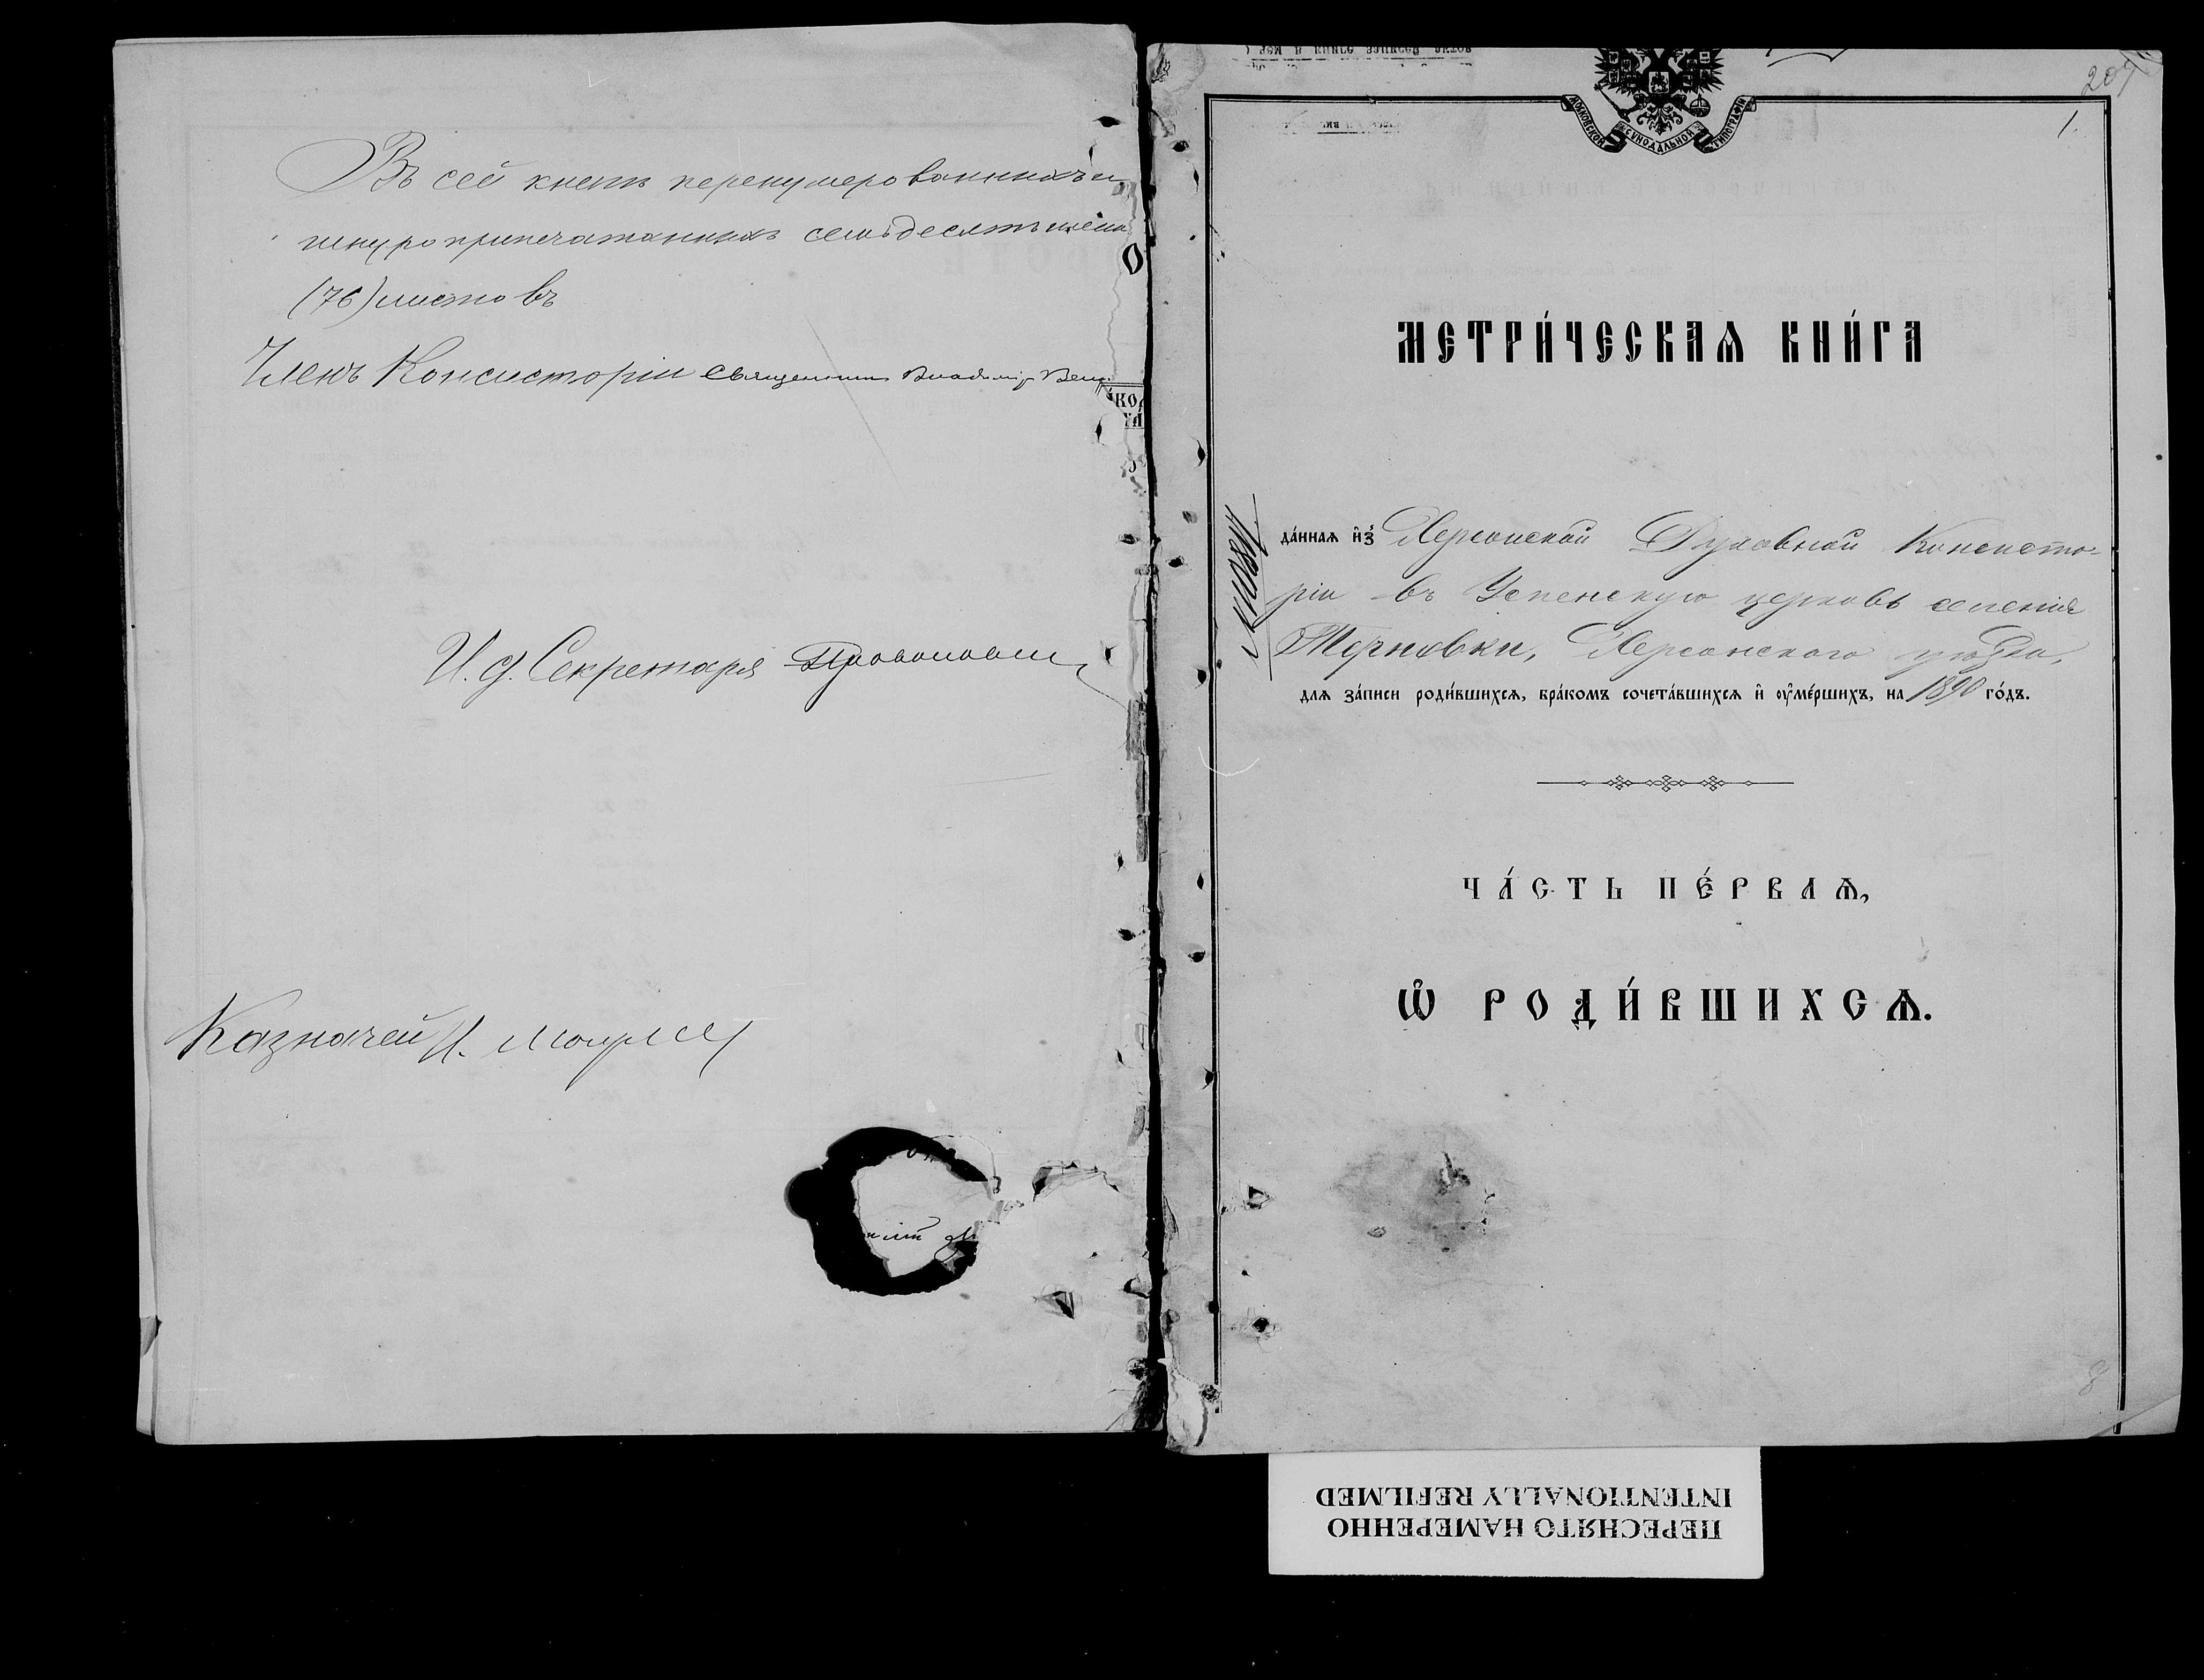 Въ сей книгѣ перенумерованныхъ и
шнуроприпечатанныхъ семьдесятъ шесть
(76) листовъ
Членъ Консисторіи Священникъ Владимір
И. д. Секретаря
Казначей И.
207
1.
МОСКОВСКОЙ СѴНОДАЛЬНОЙ ТИПОГРАФІИ
МЕТРИ́ЧЕСКАѦ КНИ́ГА
да́ннаѧ и҆з̾ Херсонской Духовной Консисто-
ріи въ Успенскую церковь селенія
Терновки, Херсонского уѣзда,
длѧ за́писи роди́вшихсѧ, бра́комъ сочета́вшихсѧ и҆ оу҆ме́ршихъ, на 1890 го́дъ.
ЧА́СТЬ ПЕ́РВАѦ,
Ѽ РОДИ́ВШИХСѦ.
8
ПЕРЕСНЯТО НАМЕРЕННО
INTENTIONALLY REFILMED